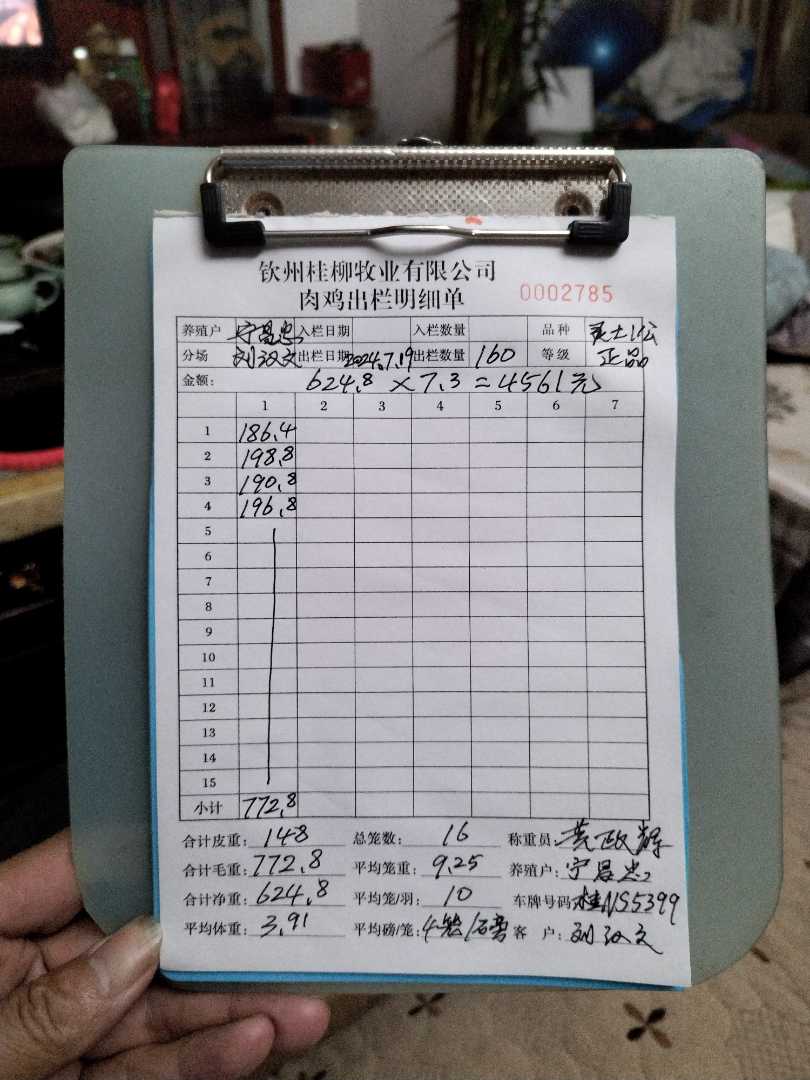 钦州桂柳牧业有限公司
肉鸡出栏明细单 0002785
养殖户 宁昌忠 入栏日期 入栏数量 品种 土
分场 刘汉文 出栏日期 2024.7.19 出栏数量 160 等级 正品
金额: 624.8 × 7.3 = 4561元
1 2 3 4 5 6 7
1 186.4
2 198.8
3 190.8
4 196.8
5
6
7
8
9
10
11
12
13
14
15
小计 772.8
合计皮重: 148 总笼数: 16 称重员: 黄政辉
合计毛重: 772.8 平均笼重: 9.25 养殖户: 宁昌忠
合计净重: 624.8 平均笼/羽: 10 车牌号码: 桂NS5399
平均体重: 3.91 平均磅/笼: 4笼/磅 客 户: 刘汉文